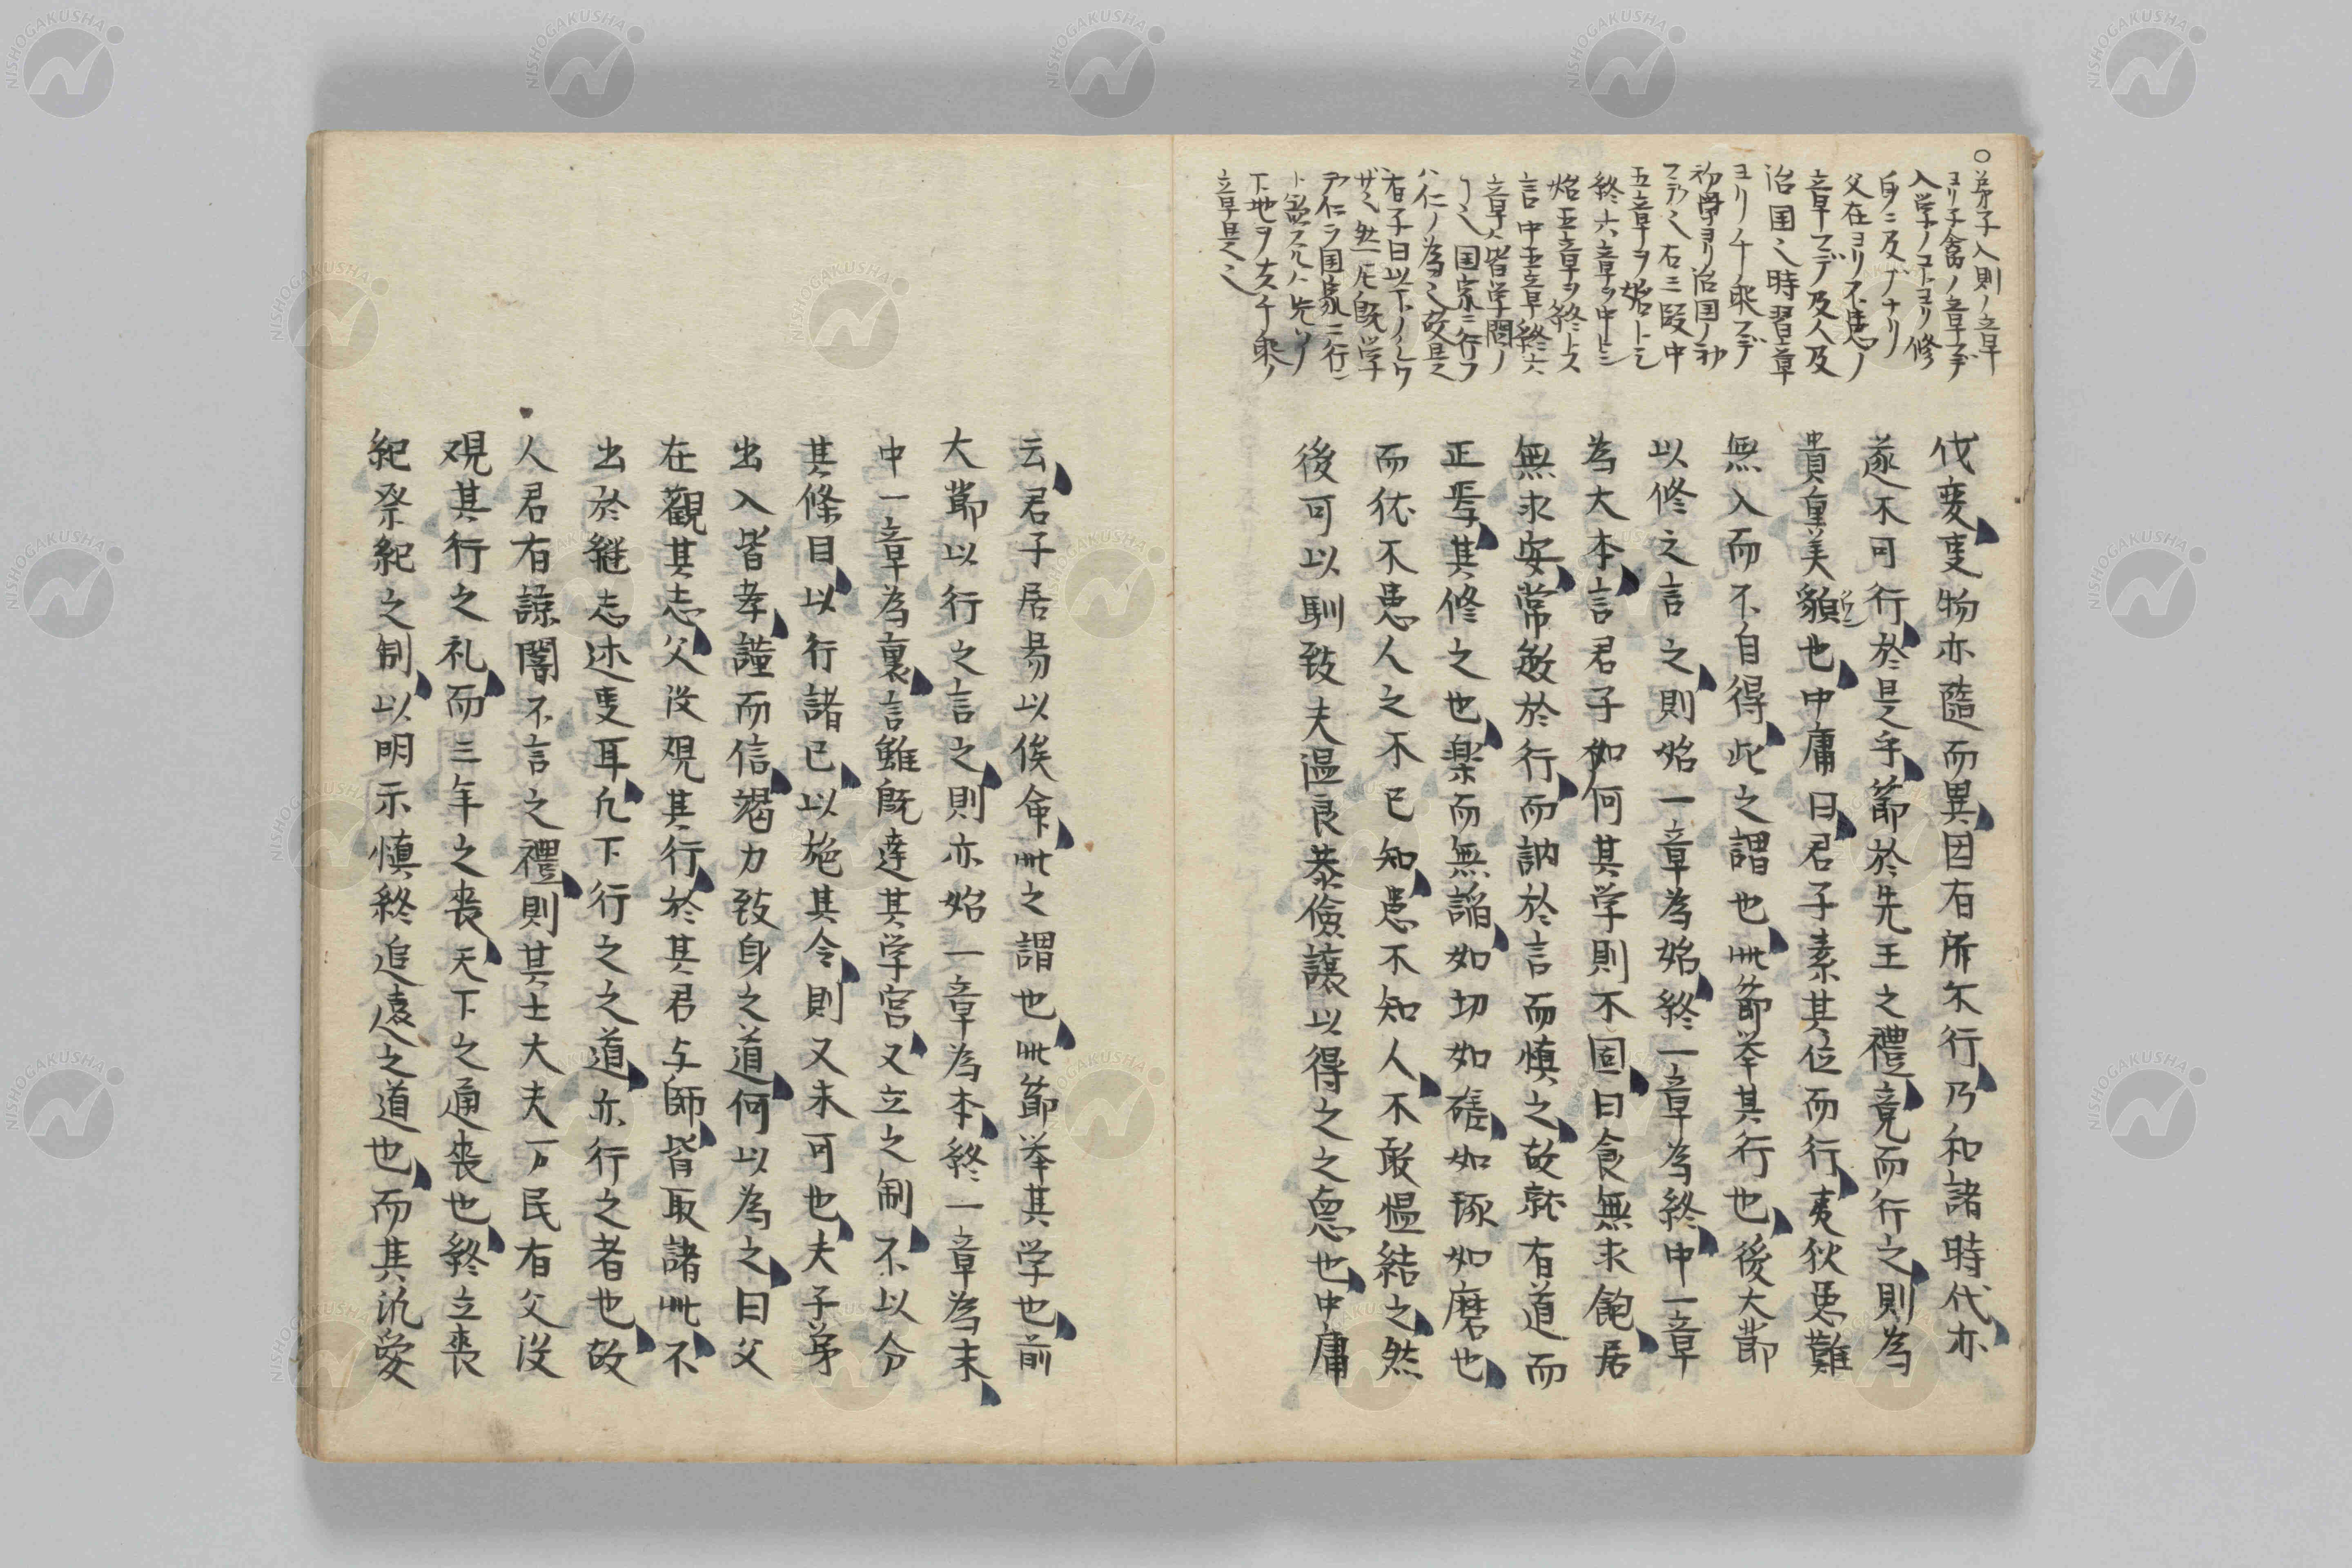 ○弟子入則ノ章
ヨリ子禽ノ章マデ
入学ノコトヨリ修
身ニ及ブナリ
父在ヨリ不患ノ
章マデ及人及
治国〻時習章
ヨリ千乘マデ
初学ヨリ治国ノ初
マデ〻右三段中
五章ヲ始トシ
終六章ヲ中トシ
始五章ヲ終トス
言中五章終六
章ハ皆学問ノ
〻国家ニ行フ
ハ仁ノ為〻故是
有子曰以下ノ
ザ〻然ドモ既学
仁ヲ国家ニ行
トスルハ先ソノ
下地ヲ夫千乘ノ
章是〻
伐変㕝物亦隨而異因有所不行乃和諸時代亦
遂不可行於是乎節於先王之禮竟而行之則為
貴重美貌也中庸曰君子素其位而行夷狄患難
無入而不自得此之謂也此節举其行也後大節
以修之言之則始一章為始終一章為終中一章
為大本言君子如何其学則不固曰食無求飽居
無求安常敏於行而訥於言而慎之故就有道而
正焉其修之也楽而無謟如切如磋如琢如磨也
而依不患人之不已知患不知人不敢慍結之然
後可以馴致夫温良恭儉讓以得之之惪也中庸
云君子居易以俟命此之謂也此節举其学也前
大節以行之言之則亦始一章為本終一章為末
中一章為裏言雖既達其学宮又立之制不以分
其條目以行諸已以施其令則又未可也夫子弟
出入皆孝謹而信竭力致身之道何以為之曰父
在觀其志父没覌其行於其君与師皆取諸此不
出於継志述㕝耳凢下行之之道亦行之者也故
人君有諒闇不言之禮則其士大夫下民有父没
覌其行之礼而三年之喪天下之通喪也終立喪
紀祭紀之制以明示慎終追遠之道也而其汎愛